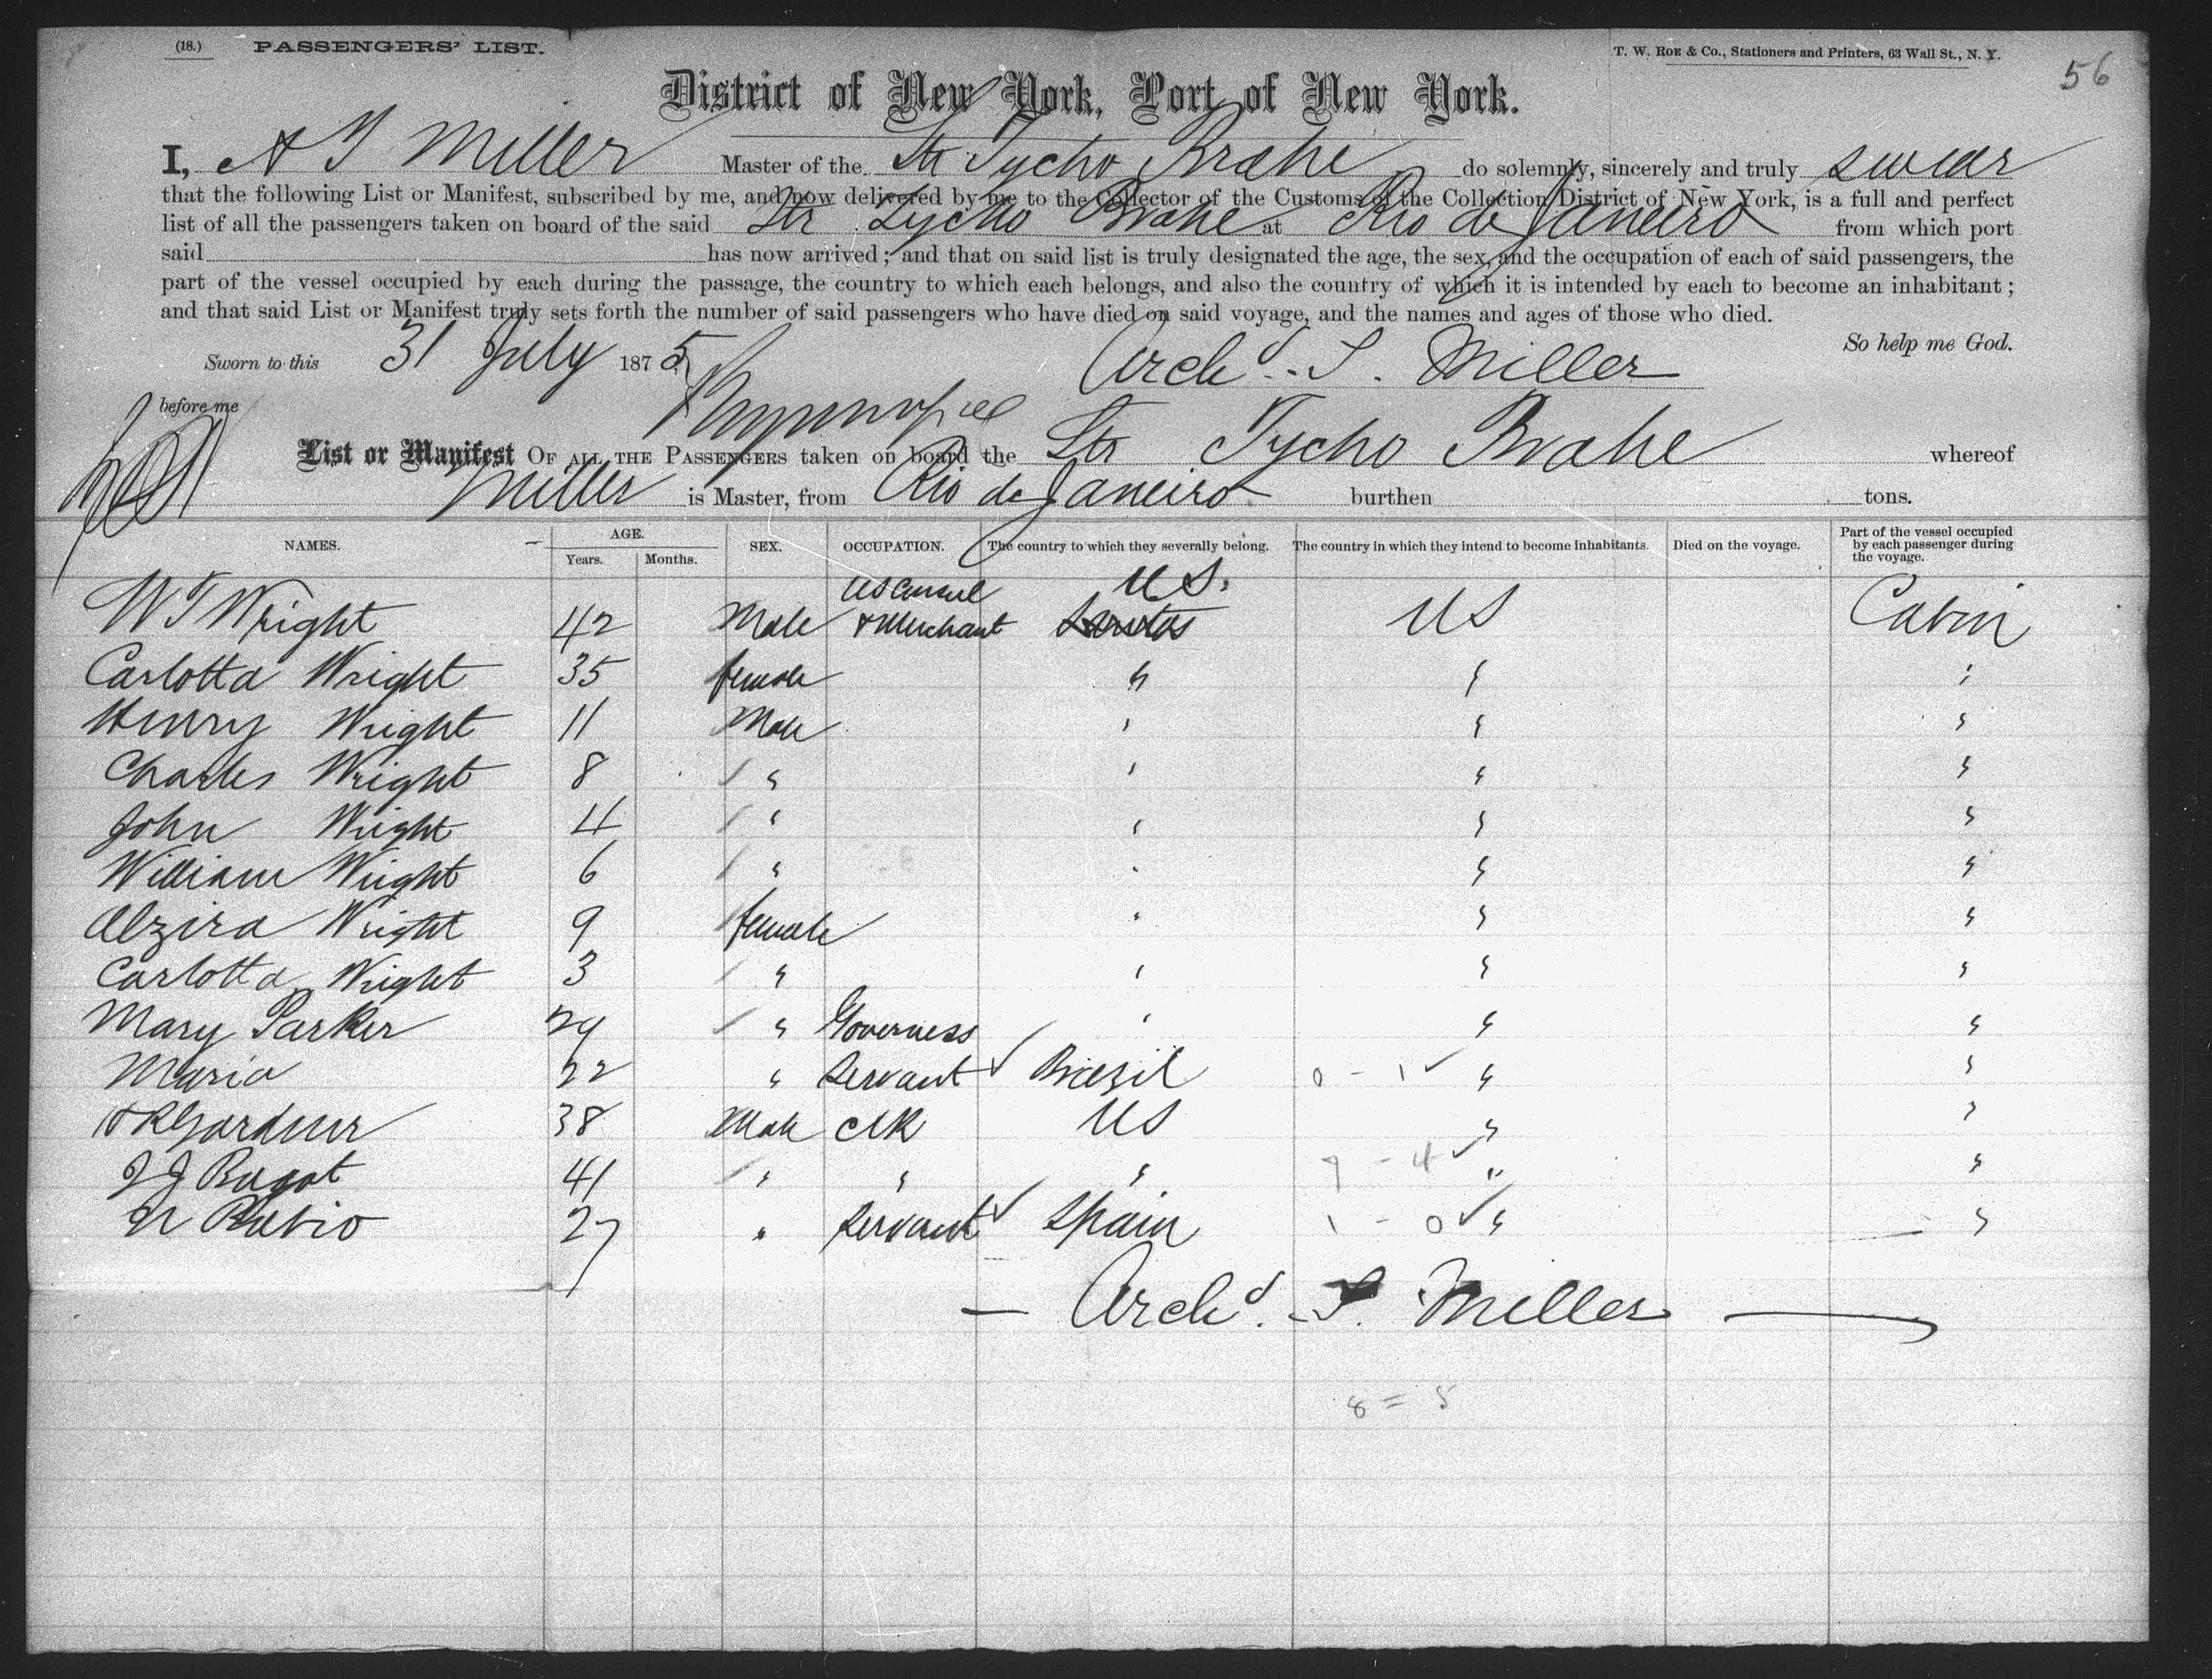 (18.) PASSENGERS' LIST. T. W. ROE & Co., Stationers and Printers, 63 Wall St., N. Y. 56
District of New York, Port of New York.
I, A T Miller Master of the Str Tycho Brahe do solemnly, sincerely and truly swear
that the following List or Manifest, subscribed by me, and now delivered by me to the Collector of the Customs of the Collection District of New York, is a full and perfect
list of all the passengers taken on board of the said Str Tycho Brahe at Rio de Janeiro from which port
said has now arrived; and that on said list is truly designated the age, the sex, and the occupation of each of said passengers, the
part of the vessel occupied by each during the passage, the country to which each belongs, and also the country of which it is intended by each to become an inhabitant;
and that said List or Manifest truly sets forth the number of said passengers who have died on said voyage, and the names and ages of those who died.
So help me God.
Sworn to this 31 July 1875 Archd. S. Miller
before me
List or Manifest OF ALL THE PASSENGERS taken on board the Str Tycho Brahe whereof
Miller is Master, from Rio de Janeiro burthen tons.
NAMES. AGE. Years. Months. SEX. OCCUPATION. The country to which they severally belong. The country in which they intend to become inhabitants. Died on the voyage. Part of the vessel occupied by each passenger during the voyage.
W T Wright 42 Male US Consul & Merchant Santos U S. US Cabin
Carlotta Wright 35 female " " "
Henry Wright 11 Male " " "
Charles Wright 8 " " " "
John Wright 4 " " " "
William Wright 6 " " " "
Alzira Wright 9 female " " "
Carlotta Wright 3 " " " "
Mary Parker 29 " Governess " " "
Maria 22 " Servant Brazil 0 - 1 " "
Gardner 38 Male clk US " "
J J Bagot 41 " " " 7 - 4 " "
Rubio 27 " Servant Spain 1 - 0 " "
Archd. S. Miller
8 = 5